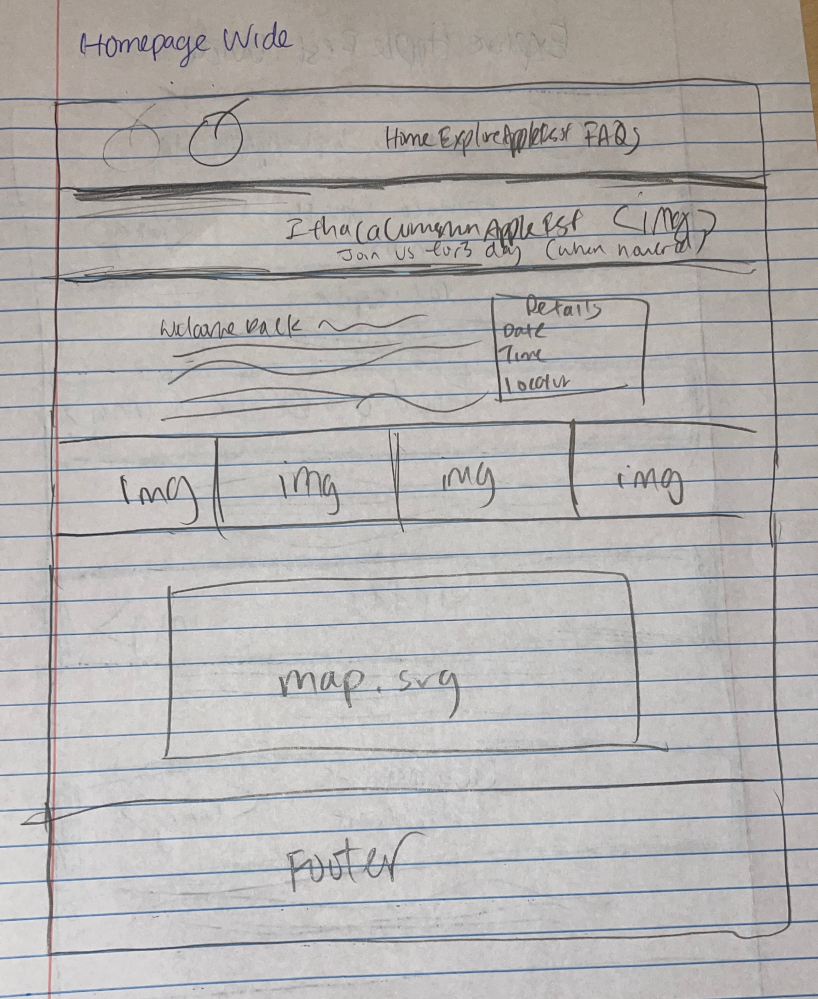 Homepage Wide
Home Explore AppleFest FAQs
Ithaca Apple Fest (img)
Join us for 3 day (when hovered)
Welcome back
Details
Date
Time
img img img img
map.svg
Footer